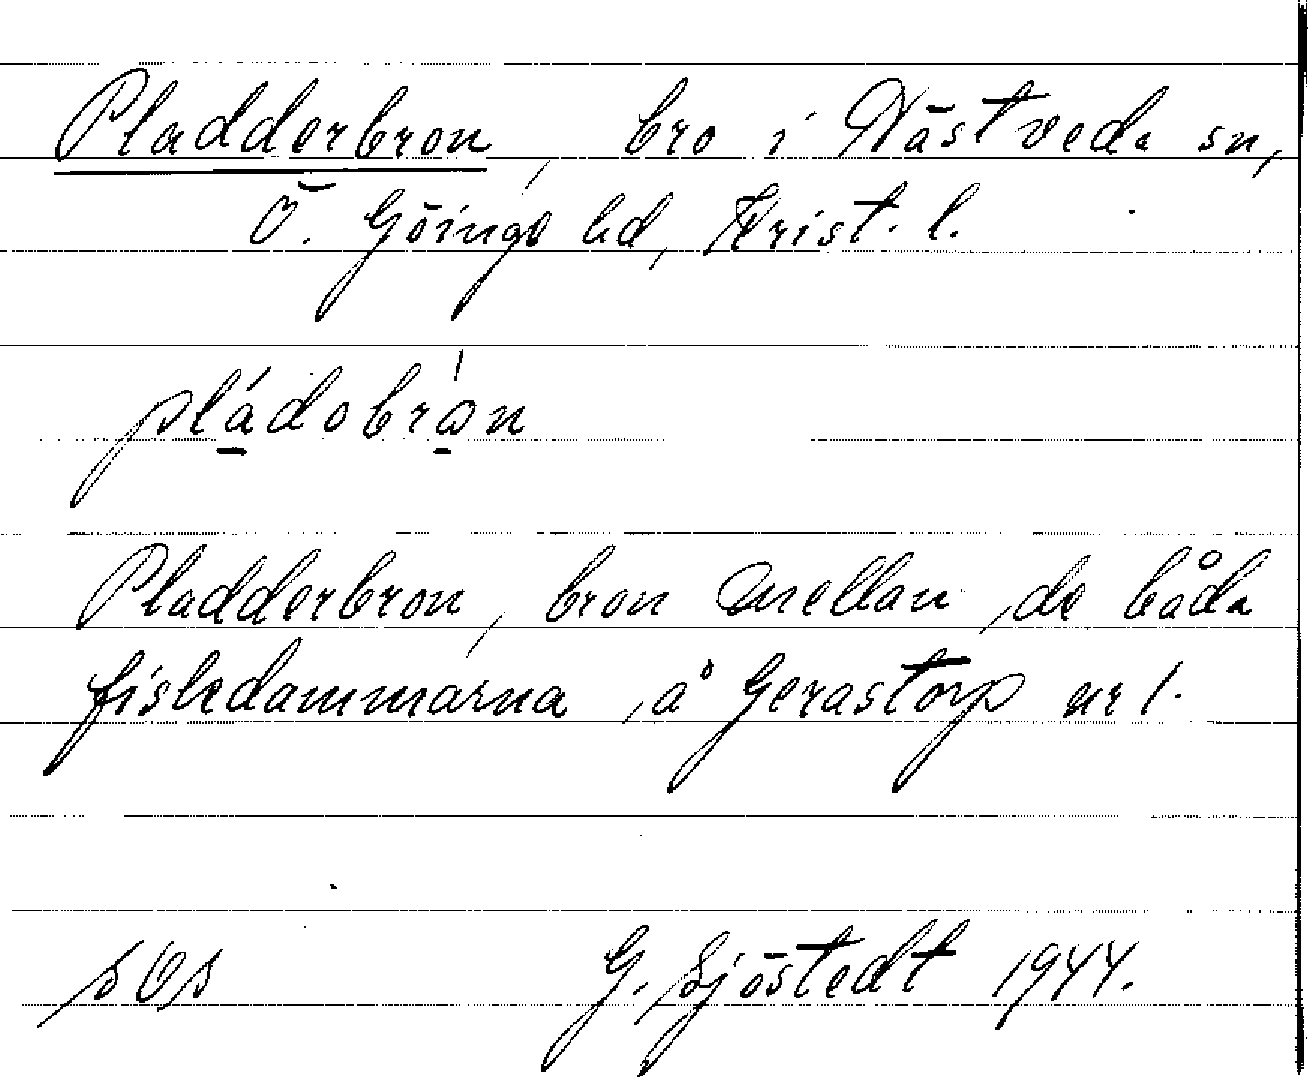 Pladderbron, bro i Nästveda sn,
Ö. Göinge hd, Krist. l.
pládobrån
Pladderbron, bron mellan de båda
fiskedammarna å Gerastorp nr 1.
sös G. Sjöstedt 1944.